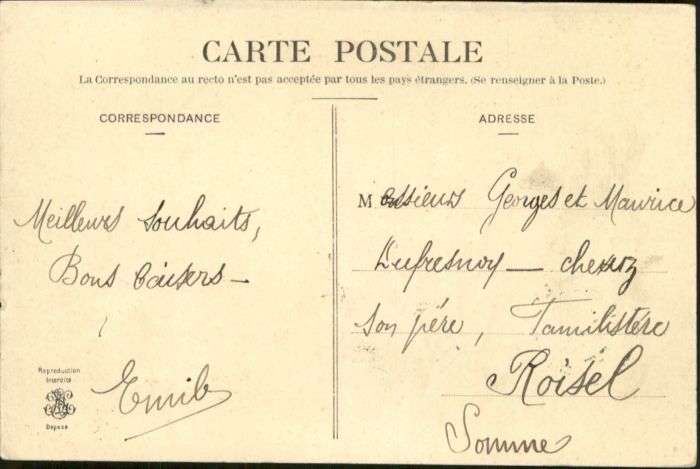 CARTE POSTALE
La Correspondance au recto n'est pas acceptée par tous les pays étrangers. (Se renseigner à la Poste.)
CORRESPONDANCE
Meilleurs souhaits,
Bons baisers —
Emile
Reproduction
Interdite
Déposé
ADRESSE
Messieurs Georges et Maurice
Dufresnoy — chez
son père, Familistère
Roisel
Somme